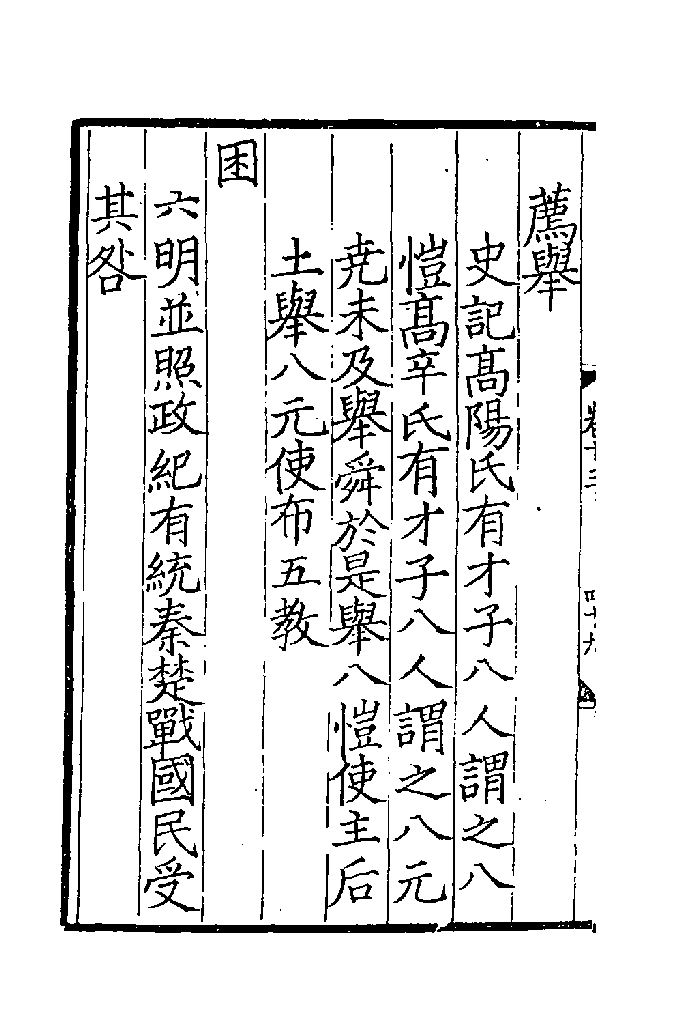 薦舉
史記髙陽氏有才子八人謂之八
愷髙辛氏有才子八人謂之八元
尭未及舉舜於是舉八愷使主后
土舉八元使布五教
困
六明並照政紀有統秦楚戰國民受
其咎